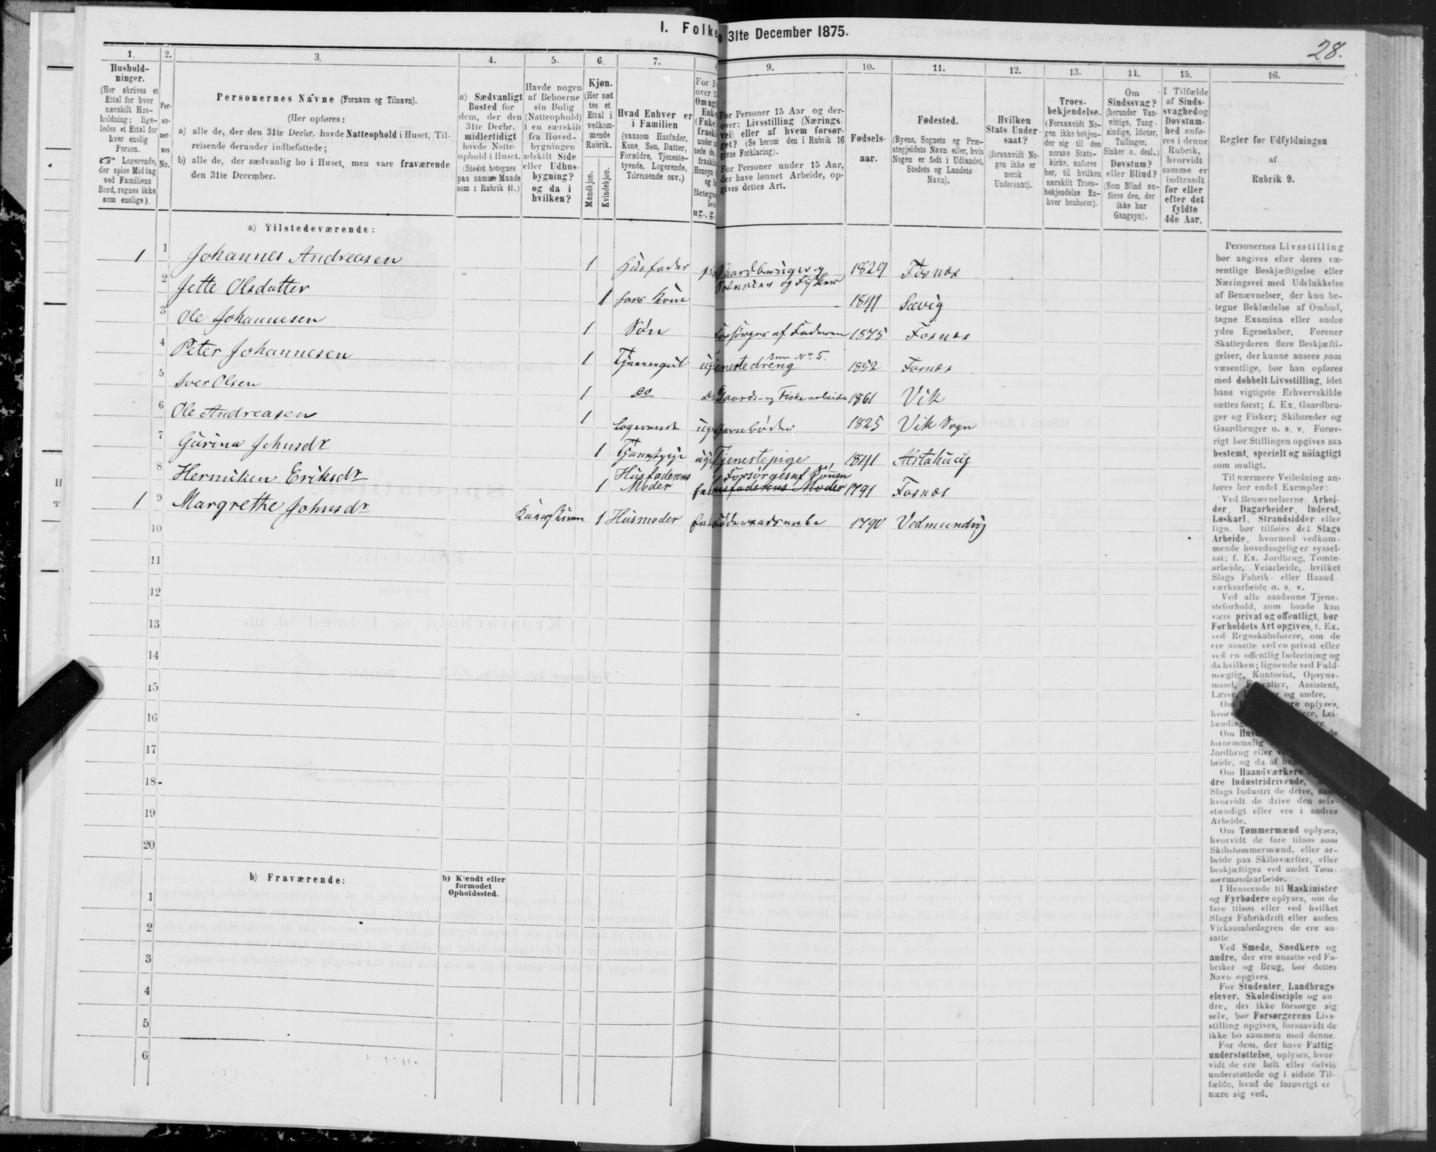 I. Folke
31te December 1875.
28.
1.
2.
3.
4.
5.
6.
7.
9.
10.
11.
12.
13.
14.
15.
16.
Hushold-
ninger.
(Her skrives et
Ettal for hver
særskilt Hus-
holdning; lige-
ledes et Ettal for
hver enslig
Person.
☞ Logerende,
der spise Middag
ved Familiens
Bord, regnes ikke
som enslige).
Per-
so-
ner-
nes
No.
Personernes Navne (Fornavn og Tilnavn).
(Her opføres:
a) alle de, der den 31te Decbr. havde Natteophold i Huset, Til-
reisende derunder indbefattede;
b) alle de, der sædvanlig bo i Huset, men vare fraværende
den 31te December.
a) Sædvanligt
Bosted for
dem, der den
31te Decbr.
midlertidigt
havde Natte-
ophold i Huset.
(Stedet betegnes
paa samme Maade
som i Rubrik 11.)
Havde nogen
af Beboerne
sin Bolig
(Natteophold)
i en særskilt
fra Hoved-
bygningen
adskilt Side
eller Udhus-
bygning?
og da i
hvilken?
Kjøn.
(Her sæt-
tes et
Ettal i
vedkom-
mende
Rubrik.
Mandkjøn.
Kvindekjøn.
Hvad Enhver er
i Familien
(saasom Husfader,
Kone, Søn, Datter,
Forældre, Tjeneste-
tyende, Logerende,
Tilreisende osv.)
For Personer 15 Aar og der-
over: Livsstilling (Nærings-
vei) eller af hvem forsør-
get? (Se herom den i Rubrik 16
givne Forklaring).
For Personer under 15 Aar,
der have lønnet Arbeide, op-
gives dettes Art.
Fødsels-
aar.
Fødested.
(Byens, Sognets og Præ-
stegjeldets Navn eller, hvis
Nogen er født i Udlandet,
Stedets og Landets
Navn).
Hvilken
Stats Under-
saat?
(forsaavidt No-
gen ikke er
norsk
Undersaat).
Troes-
bekjendelse.
(Forsaavidt No-
gen ikke bekjen-
der sig til den
norske Stats-
kirke, anføres
her, til hvilken
særskilt Troes-
bekjendelse En-
hver henhører).
Om
Sindssvag?
(herunder Van-
vittige, Tung-
sindige, Idioter,
Tullinger,
Sinker o. desl.)
Døvstum?
eller Blind?
(Som Blind an-
føres den, der
ikke har
Gangsyn).
I Tilfælde
af Sinds-
svaghed og
Døvstum-
hed anfø-
res i denne
Rubrik,
hvorvidt
samme er
indtraadt
før eller
efter det
fyldte
4de Aar.
Regler for Udfyldningen
af
Rubrik 9.
a) Tilstedeværende:
1 1 Johannes Andreasen 1 Husfader Gaardbruger og Selveier og Fisker 1829 Fosnæs
2 Jette Olsdatter 1 hans Kone 1841 Sævig
3 Ole Johannesen 1 Søn Forsørges af Faderen 1875 Fosnæs
4 Peter Johannesen 1 Tjenestedreng Søn No 5. 1852 Fosnæs
5 Iver Olsen 1 do Gaards- og Fiskearbeide 1861 Vik
6 Ole Andreasen 1 Logerende 1825 Vik Sogn
7 Gurina Johnsdr 1 ug Tjenestepige 1841 Alstahaug
8 Hermiken Eriksdr 1 Husfaderens Moder Forsørges af Sønnen Husfaderens Moder 1791 Fosnæs
1 9 Margrethe Johnsdr 1 Husmoder Føderaadsenke 1790 Vedmundvig
10
11
12
13
14
15
16
17
18
19
20
b) Fraværende:
b) Kjendt eller
formodet
Opholdssted.
1
2
3
4
5
6
Personernes Livsstilling
bør angives efter deres væ-
sentlige Beskjæftigelse eller
Næringsvei med Udelukkelse
af Benævnelser, der kun be-
tegne Beklædelse af Ombud,
tagne Examina eller andre
ydre Egenskaber. Forener
Skatteyderen flere Beskjæfti-
gelser, der kunne ansees som
væsentlige, bør han opføres
med dobbelt Livsstilling, idet
hans vigtigste Erhvervskilde
sættes først; f. Ex. Gaardbru-
ger og Fisker; Skibsreder og
Gaardbruger o. s. v. Forøv-
rigt bør Stillingen opgives saa
bestemt, specielt og nøiagtigt
som muligt.
Til nærmere Veiledning an-
føres her endel Exempler:
Ved Benævnelserne: Arbei-
der, Dagarbeider, Inderst,
Løskarl, Strandsidder eller
lign. bør tilføies det Slags
Arbeide, hvormed vedkom-
mende hovedsagelig er syssel-
sat; f. Ex. Jordbrug, Tomte-
arbeide, Veiarbeide, hvilket
Slags Fabrik- eller Haand-
værksarbeide o. s. v.
Ved alle saadanne Tjene-
steforhold, som baade kan
være privat og offentligt, bør
Forholdets Art opgives, f. Ex.
ved Regnskabsførere, om de
ere ansatte ved en privat eller
ved en offentlig Indretning og
da hvilken; lignende ved Fuld-
mægtig, Kontorist, Opsyns-
mand, Forvalter, Assistent,
Om Haandværkere
dre Industridrivende,
Slags Industri de drive, samt
hvorvidt de drive den selv-
stændigt eller ere i andres
Arbeide.
Om Tømmermænd oplyses,
hvorvidt de fare tilsøs som
Skibstømmermænd, eller ar-
beide paa Skibsværfter, eller
beskjæftiges ved andet Tøm-
mermandsarbeide.
I Henseende til Maskinister
og Fyrbødere oplyses, om de
fare tilsøs eller ved hvilket
Slags Fabrikdrift eller anden
Virksomhedsgren de ere an-
satte
Ved Smede, Snedkere og
andre, der ere ansatte ved Fa-
briker og Brug, bør dettes
Navn opgives.
For Studenter, Landbrugs-
elever, Skoledisciple og an-
dre, der ikke forsørge sig
selv, bør Forsørgerens Livs-
stilling opgives, forsaavidt de
ikke bo sammen med denne.
For dem, der have Fattig-
understøttelse, oplyses, hvor-
vidt de ere helt eller delvis
understøttede og i sidste Til-
fælde, hvad de forøvrigt er-
nære sig ved.